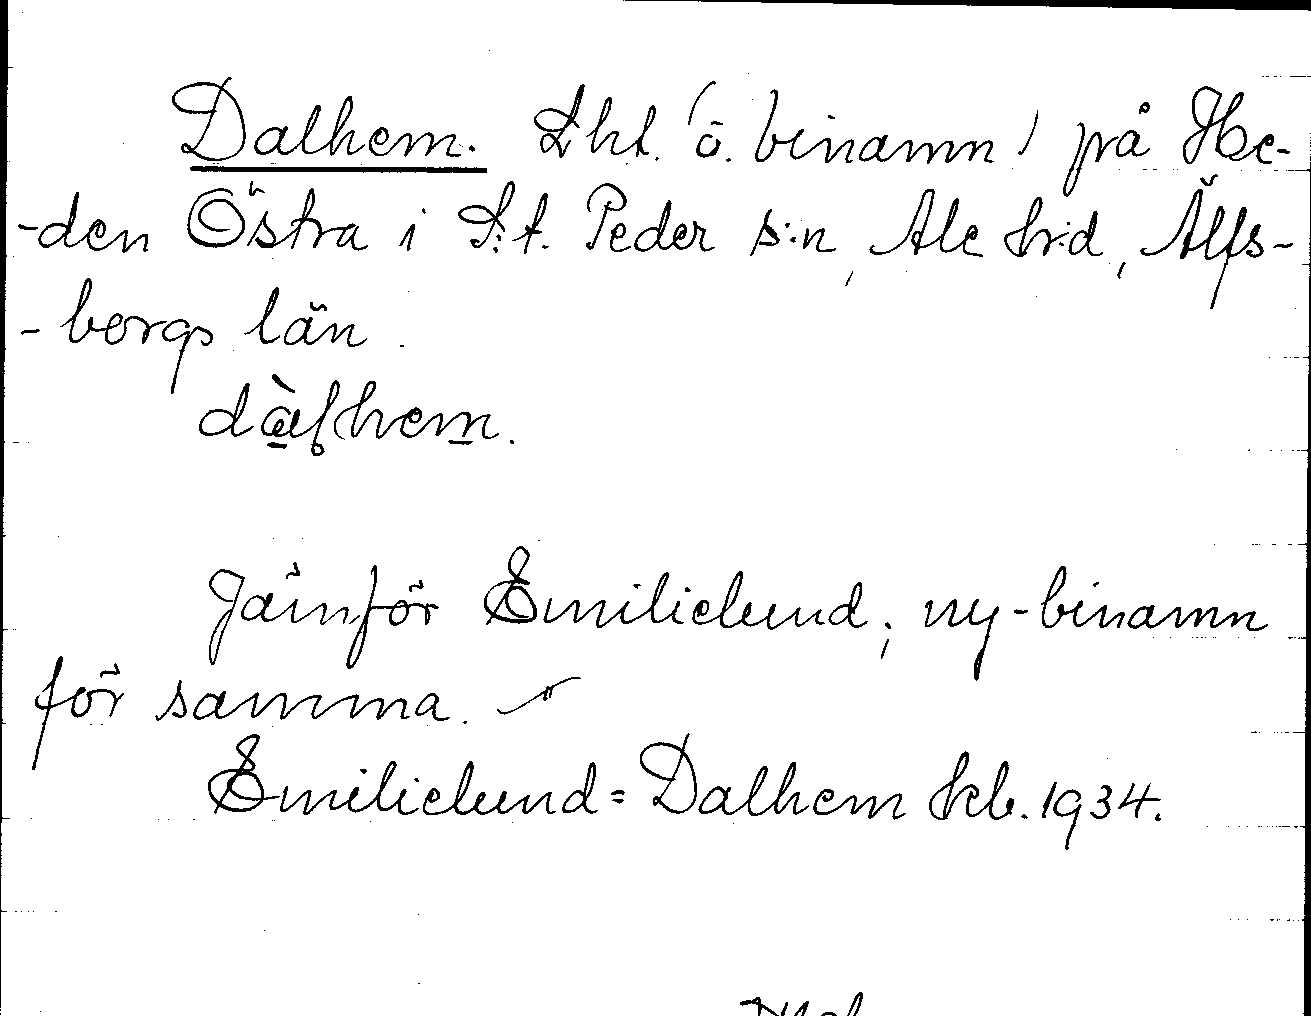 Dalhem. Lht. (ö. binamn) på He-
-den Östra i S:t. Peder s:n, Ale hrd, Älfs-
-borgs län.
dàlhem.
Jämför Emilielund, ny-binamn
för samma.
Emilielund = Dalhem Skb. 1934.